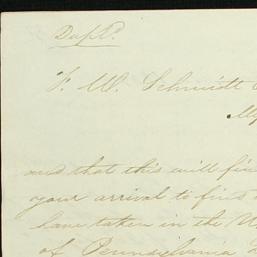 Dupl.
F. W. Schmidt
My
and that this will find
your arrival to find
have taken in the
of Pennsylvania